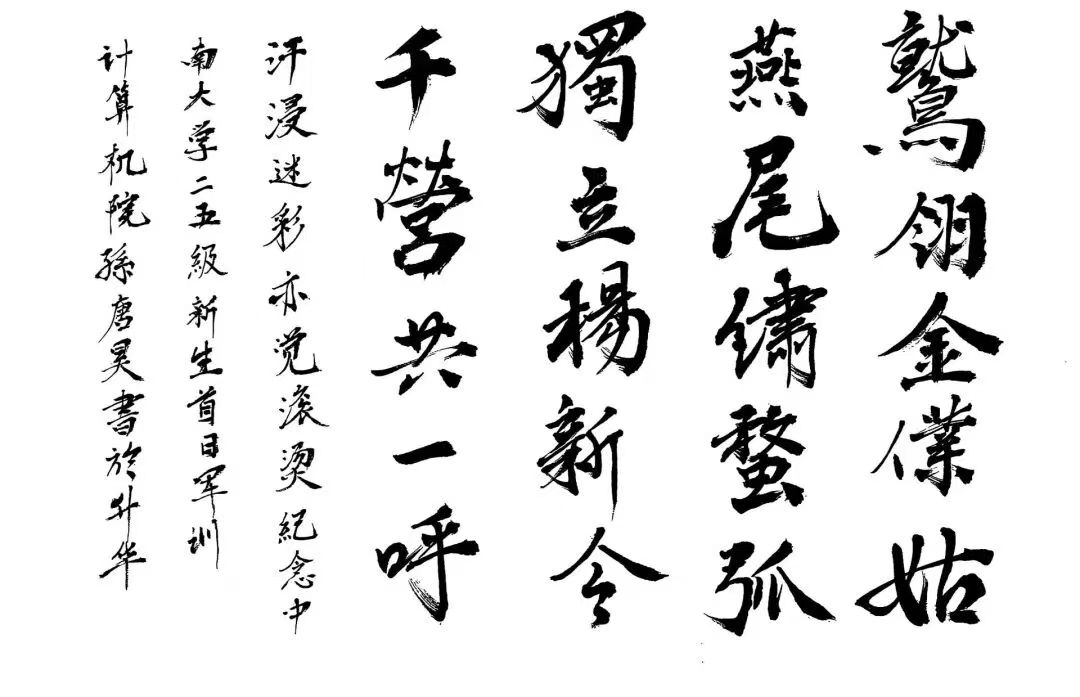 鷲翎金僕姑
燕尾繡蝥弧
獨立楊新令
千營共一呼
汗浸迷彩亦觉滚烫紀念中
南大学二五級新生首日军训
计算机院孫唐昊書於升华